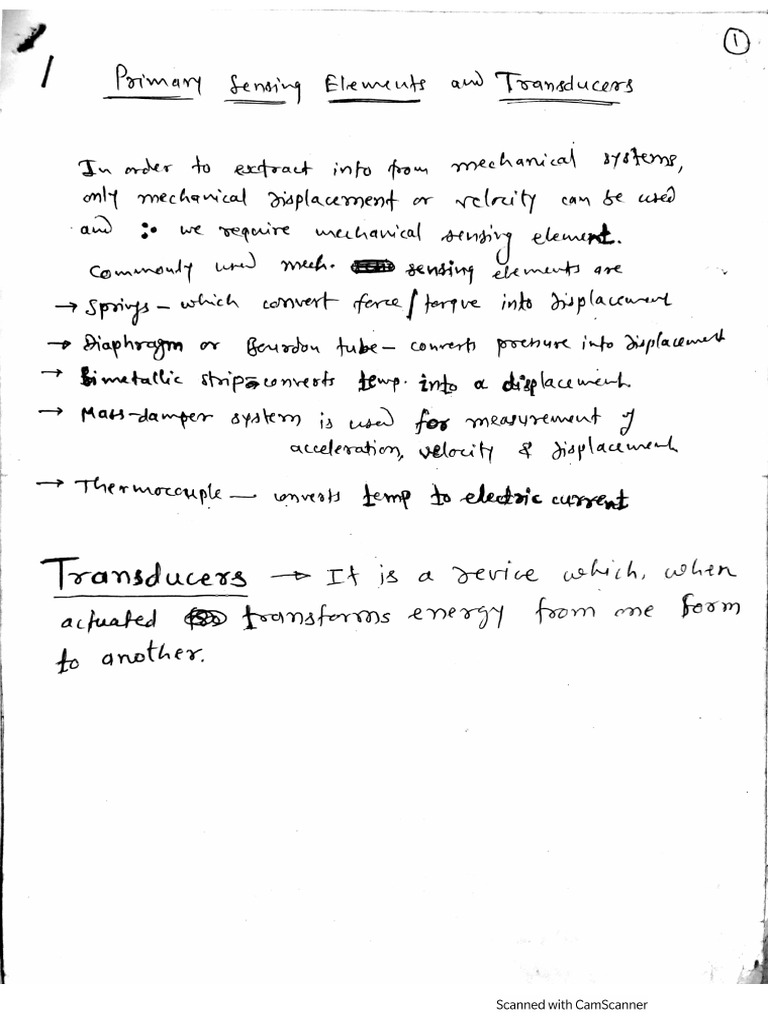 1
Primary Sensing Elements and Transducers
In order to extract info from mechanical systems,
only mechanical displacement or velocity can be used
and ∴ we require mechanical sensing element.
Commonly used mech. sensing elements are
→ Springs – which convert force/torque into displacement
→ Diaphragm or Bourdon tube – converts pressure into displacement
→ Bimetallic strip – converts temp. into a displacement
→ Mass-damper system is used for measurement of
acceleration, velocity & displacement
→ Thermocouple – converts temp to electric current
Transducers → It is a device which, when
actuated transforms energy from one form
to another.
Scanned with CamScanner